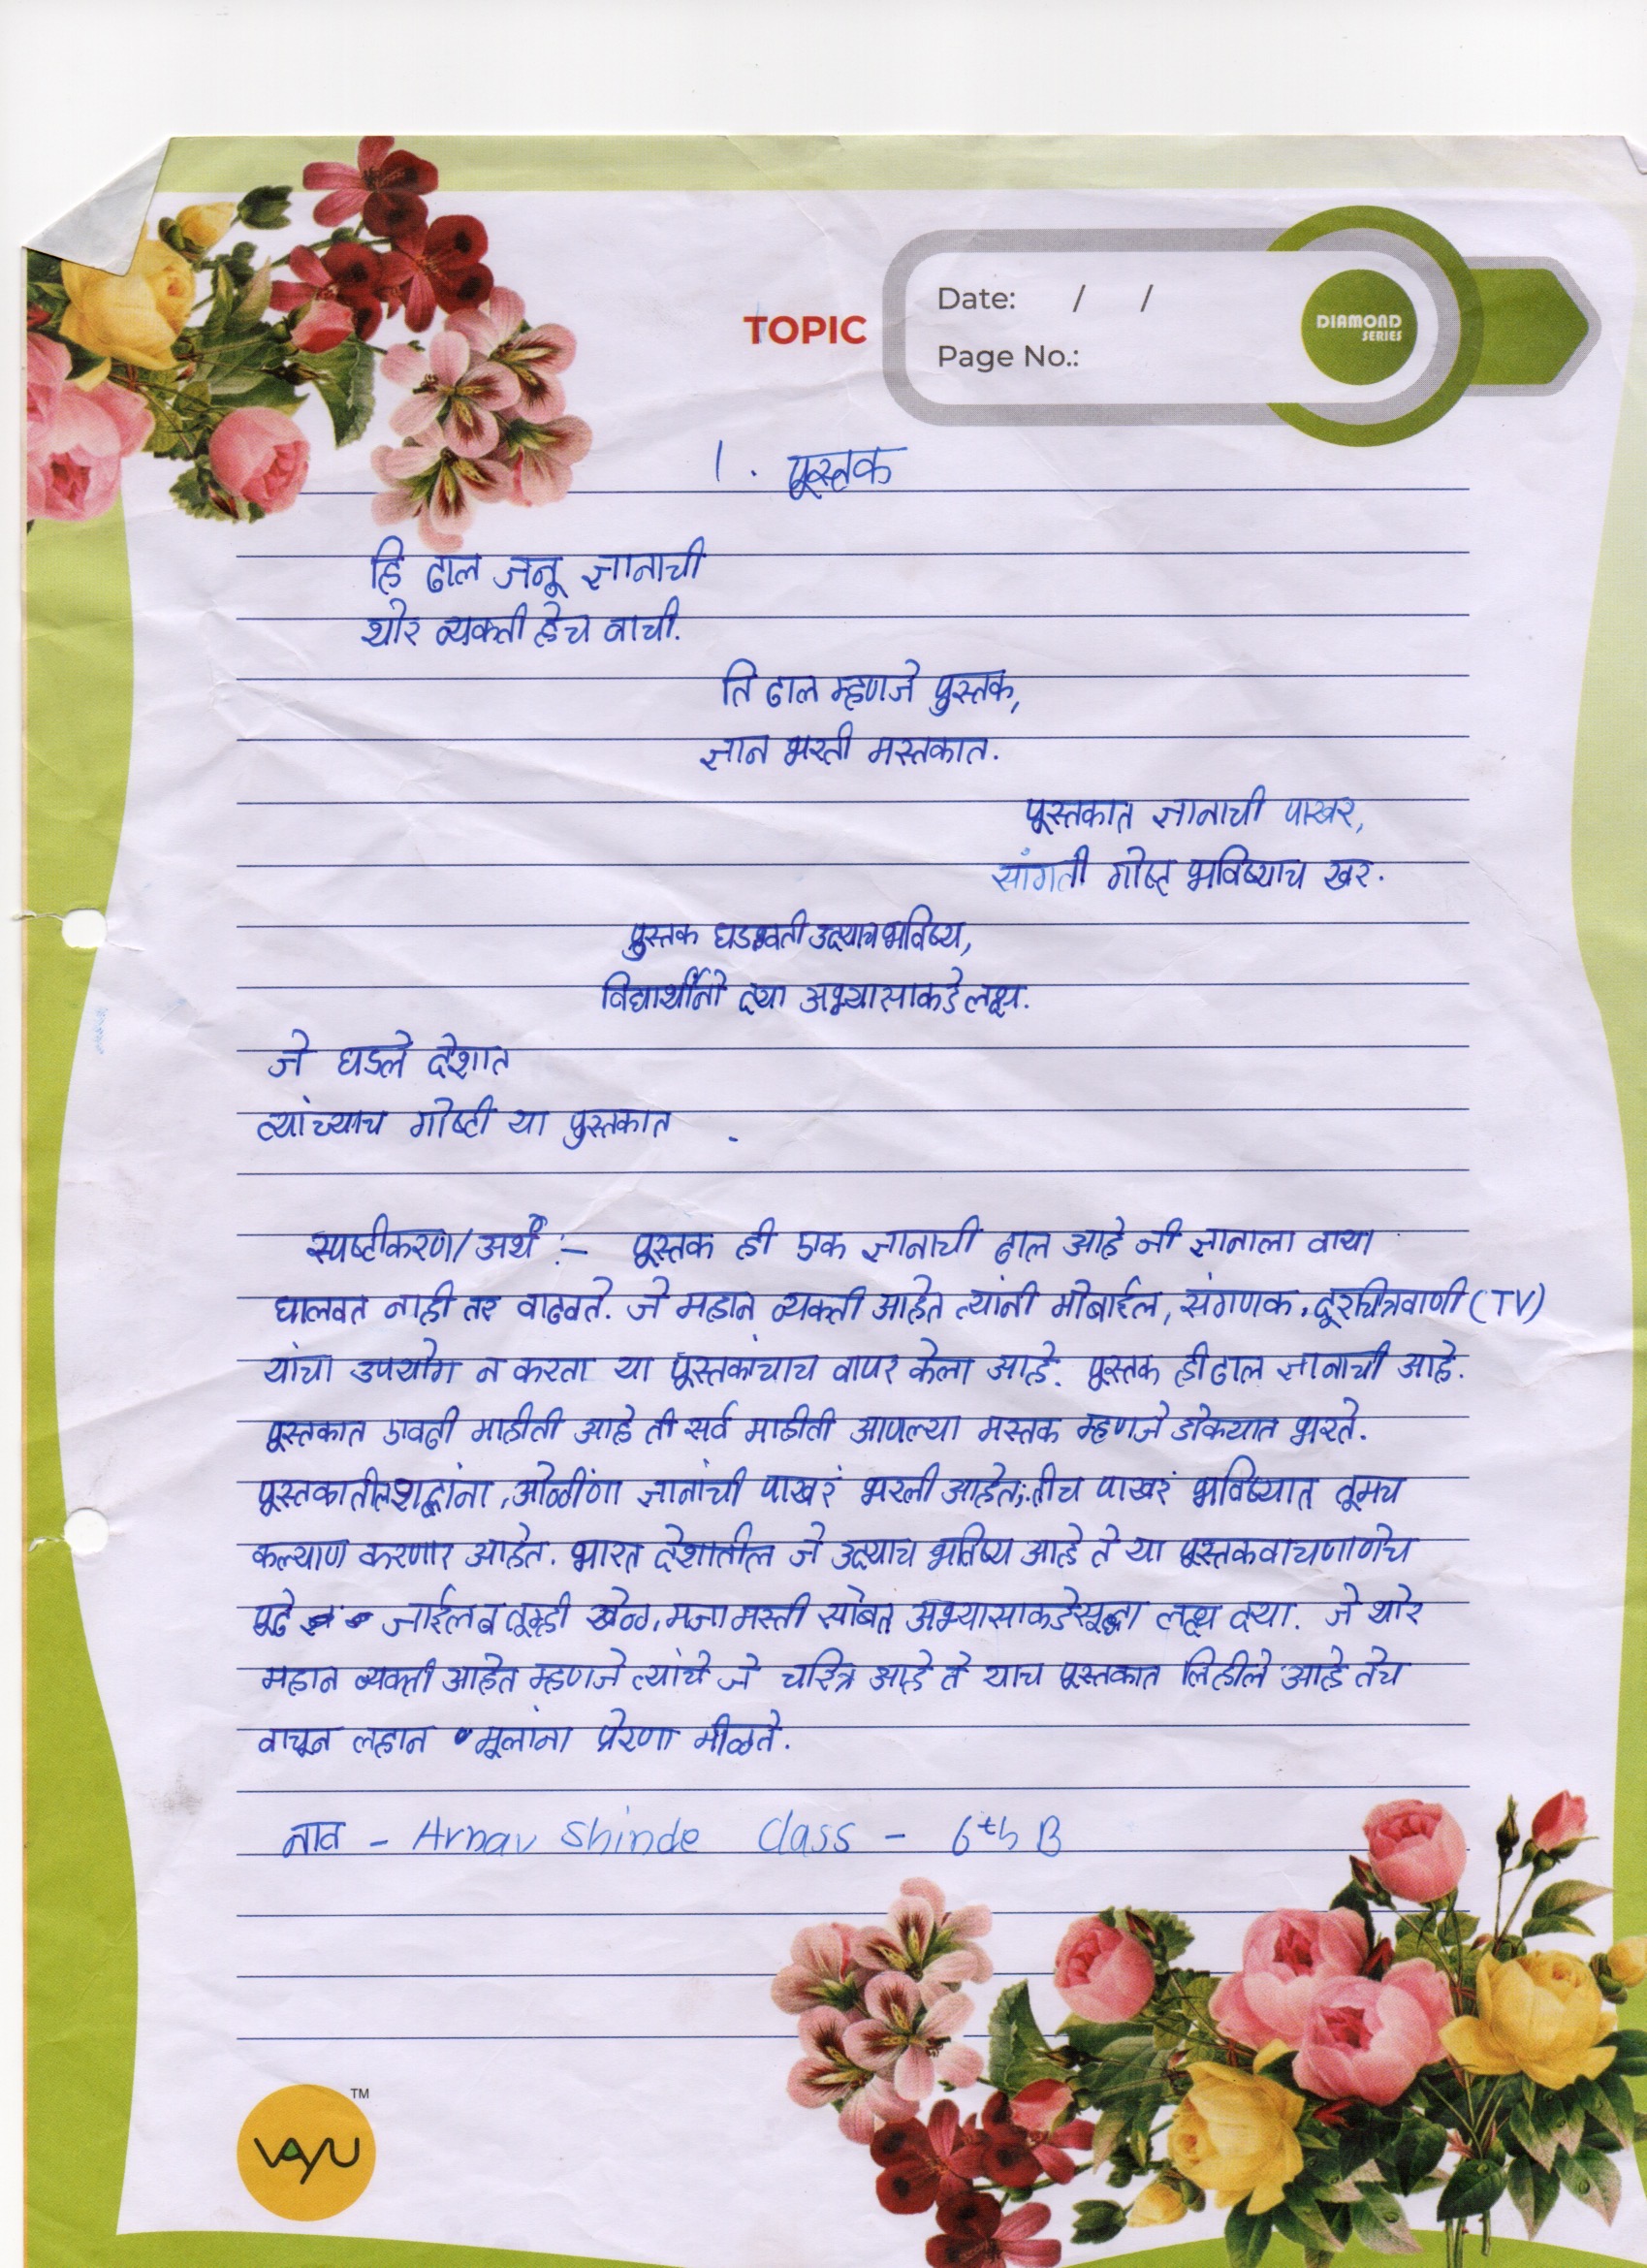 TOPIC
Date: / /
Page No.:
DIAMOND
SERIES
1. पूस्तक
हि ढाल जनू ज्ञानाची
थोर व्यक्ती हेच वाची.
ति ढाल म्हणजे पुस्तक,
ज्ञान भरती मस्तकात.
पूस्तकात ज्ञानाची पाखर,
सांगती गोष्ट भविष्याच खर.
पुस्तक घडवती उद्याच भविष्य,
विद्यार्थीनो द्या अभ्यासाकडे लक्ष.
जे घडले देशात
त्यांच्याच गोष्टी या पुस्तकात .
स्पष्टीकरण/अर्थ :- पूस्तक ही एक ज्ञानाची ढाल आहे जी ज्ञानाला वाया
घालवत नाही तर वाढवते. जे महान व्यक्ती आहेत त्यांनी मोबाईल, संगणक, दूरचित्रवाणी (TV)
यांचा उपयोग न करता या पूस्तकांचाच वापर केला आहे. पूस्तक ही ढाल ज्ञानाची आहे.
पूस्तकात एवढी माहीती आहे ती सर्व माहीती आपल्या मस्तक म्हणजे डोकयात भरते.
पूस्तकातील शद्बांना, ओळींना ज्ञानांची पाखरं भरली आहेत, तीच पाखरं भविष्यात तूमच
कल्याण करणार आहेत. भारत देशातील जे उद्याच भविष्य आहे ते या पूस्तकवाचणाणेच
पूढे जाईल व तूम्ही खेळ, मजा मस्ती सोबत अभ्यासाकडेसूद्धा लक्ष द्या. जे थोर
महान व्यक्ती आहेत म्हणजे त्यांचे जे चरित्र आहे ते याच पूस्तकात लिहीले आहे तेच
वाचून लहान मूलांना प्रेरणा मीळते.
नाव - Arnav Shinde Class - 6th B
VAYU TM